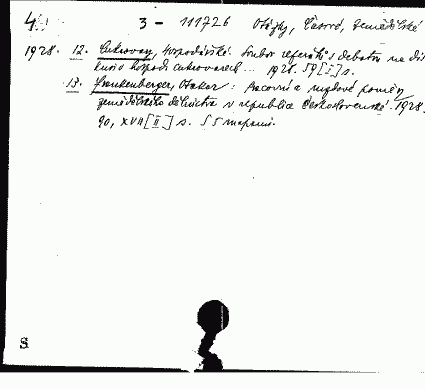 4. 3 - 111726 Otázky, Časové, zemědělské
1928. 12. Cukrovary, hospodářské. Soubor referátů s debatou na dis
kusi o hospod. cukrovarech ... 1928. 59 [I] s.
13. Frankenberger, Otakar: Pracovní a mzdové poměry
zemědělského dělnictva v republice Československé. 1928.
90, XVII [II] s. s 5 mapami.
S